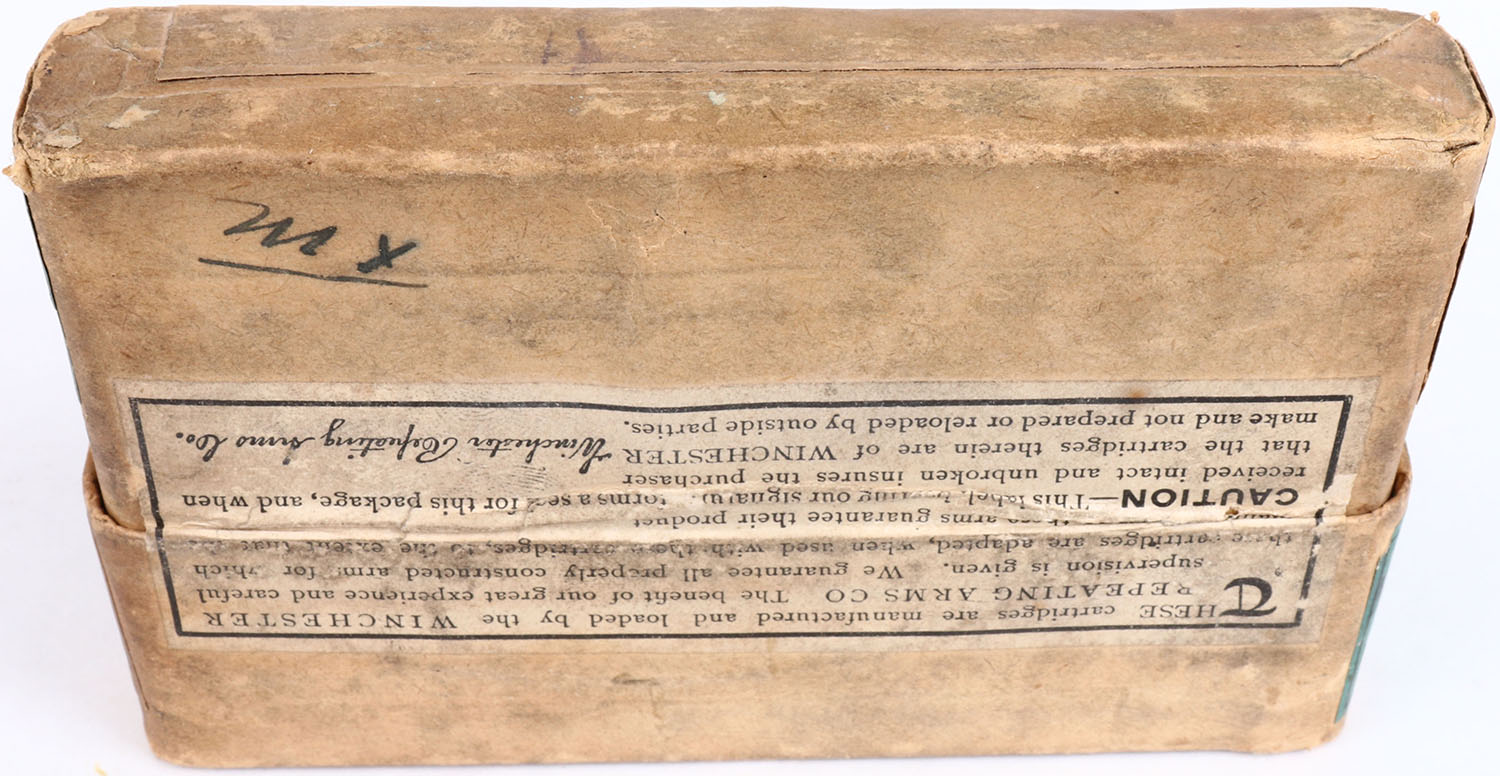 THESE cartridges are manufactured and loaded by the WINCHESTER
REPEATING ARMS CO The benefit of our great experience and careful
supervision is given. We guarantee all properly constructed arms for which
these cartridges are adapted, when used with these cartridges, to the extent that the
these arms guarantee their product
CAUTION—This label, bearing our signature, forms a seal for this package, and when
received intact and unbroken insures the purchaser
that the cartridges therein are of WINCHESTER
make and not prepared or reloaded by outside parties.
Winchester Repeating Arms Co.
x m